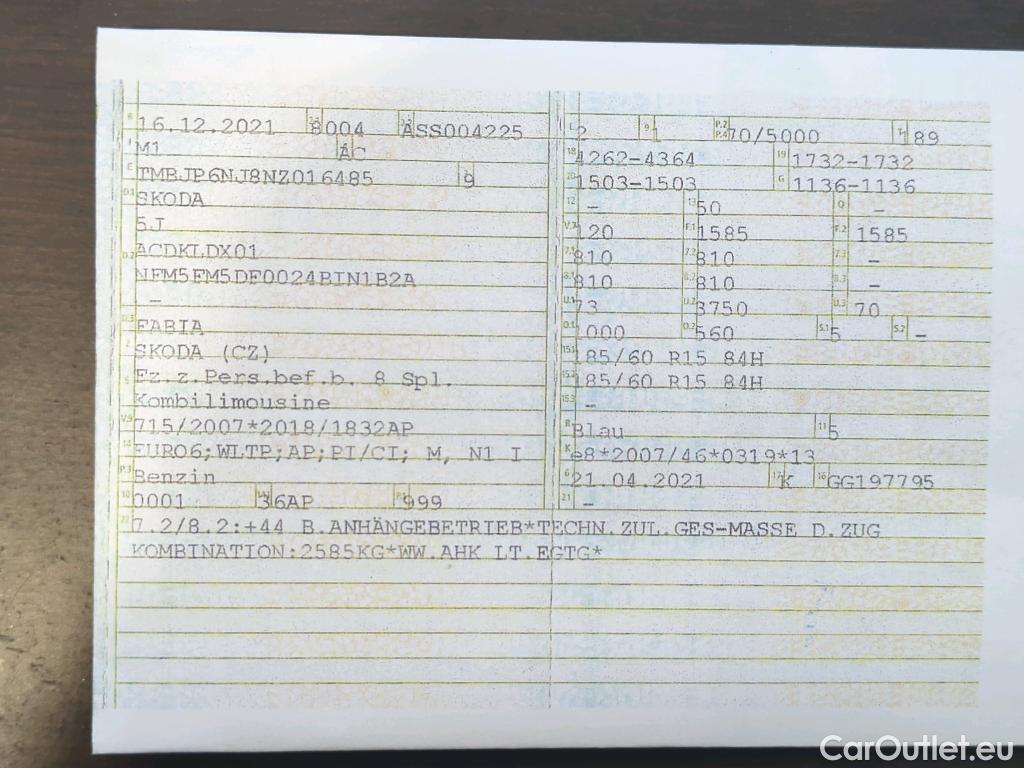 B 16.12.2021 2.1 8004 2.2 ASS004225
J M1 4 AC
E TMBJP6NJ8NZ016485 3 9
D.1 SKODA
5J
D.2 ACDKLDX01
NFM5FM5DF0024BIN1B2A
–
D.3 FABIA
2 SKODA (CZ)
5 Fz.z.Pers.bef.b. 8 Spl.
Kombilimousine
V.9 715/2007*2018/1832AP
14 EURO6;WLTP;AP;PI/CI; M, N1 I
P.3 Benzin
10 0001 14.1 36AP P.1 999
L 2 9 1 P.2 P.4 70/5000 T 189
18 4262-4364 19 1732-1732
20 1503-1503 G 1136-1136
12 – 13 50 Q –
V.7 120 F.1 1585 F.2 1585
7.1 810 7.2 810 7.3 –
8.1 810 8.2 810 8.3 –
U.1 73 U.2 3750 U.3 70
O.1 1000 O.2 560 S.1 5 S.2 –
15.1 185/60 R15 84H
15.2 185/60 R15 84H
15.3 –
R Blau 11 5
K e8*2007/46*0319*13
6 21.04.2021 17 K 16 GG197795
21 –
22 7.2/8.2:+44 B.ANHÄNGEBETRIEB*TECHN.ZUL.GES-MASSE D.ZUG
KOMBINATION:2585KG*WW.AHK LT.EGTG*
CarOutlet.eu